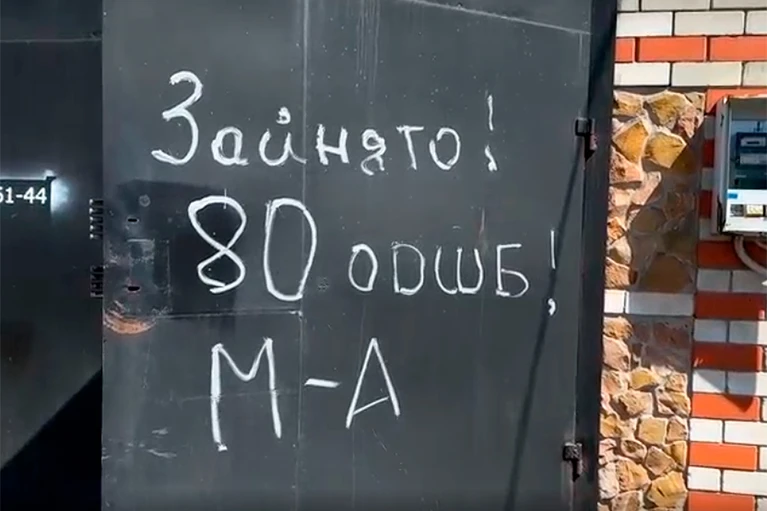 Зайнято!
80 одшб!
М-А
51-44